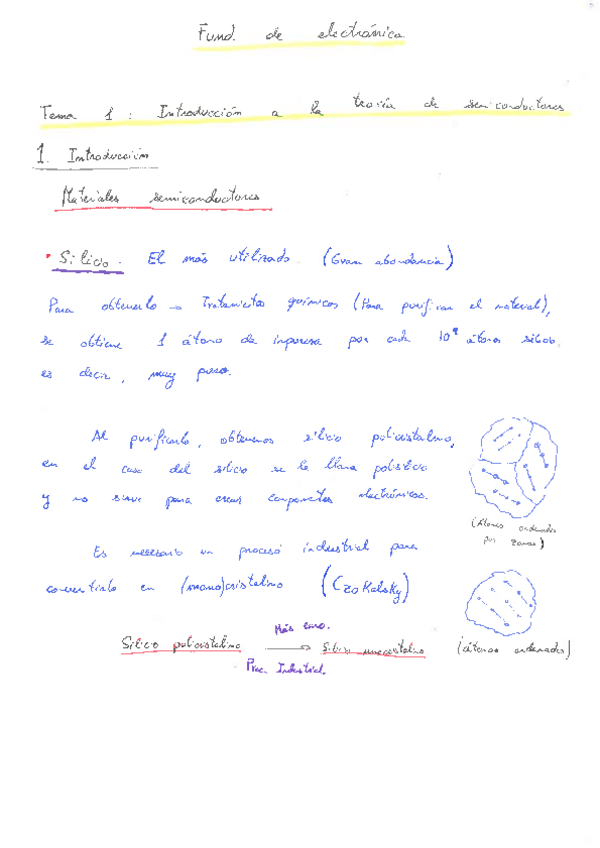 Fund. de electrónica
Tema 1: Introducción a la teoría de semiconductores
1. Introducción
Materiales semiconductores
• Silicio. El más utilizado. (Gran abundancia)
Para obtenerlo → Tratamientos químicos (Para purificar el material),
se obtiene 1 átomo de impureza por cada 10⁹ átomos silicio,
es decir, muy puro.
Al purificarlo, obtenemos silicio policristalino,
en el caso del silicio se le llama polisilicio
y no sirve para crear componentes electrónicos.
(Átomos ordenados
por zonas)
Es necesario un proceso industrial para
convertirlo en (mono)cristalino (Czokalsky)
Más caro.
Silicio policristalino → Silicio monocristalino (átomos ordenados)
Proc. Industrial.